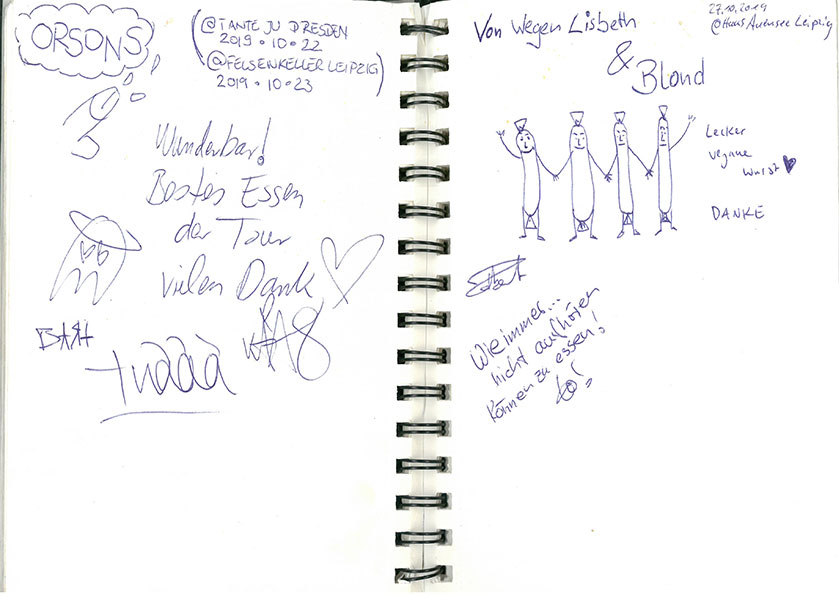 ORSONS
@TANTE JU DRESDEN
2019.10.22
@FELSENKELLER LEIPZIG
2019.10.23
Wunderbar!
Bestes Essen
der Tour
vielen Dank
Von Wegen Lisbeth
& Blond
27.10.2019
@Haus Auensee Leipzig
Lecker
vegane
Wurst
DANKE
Wie immer...
nicht aufhören
können zu essen!